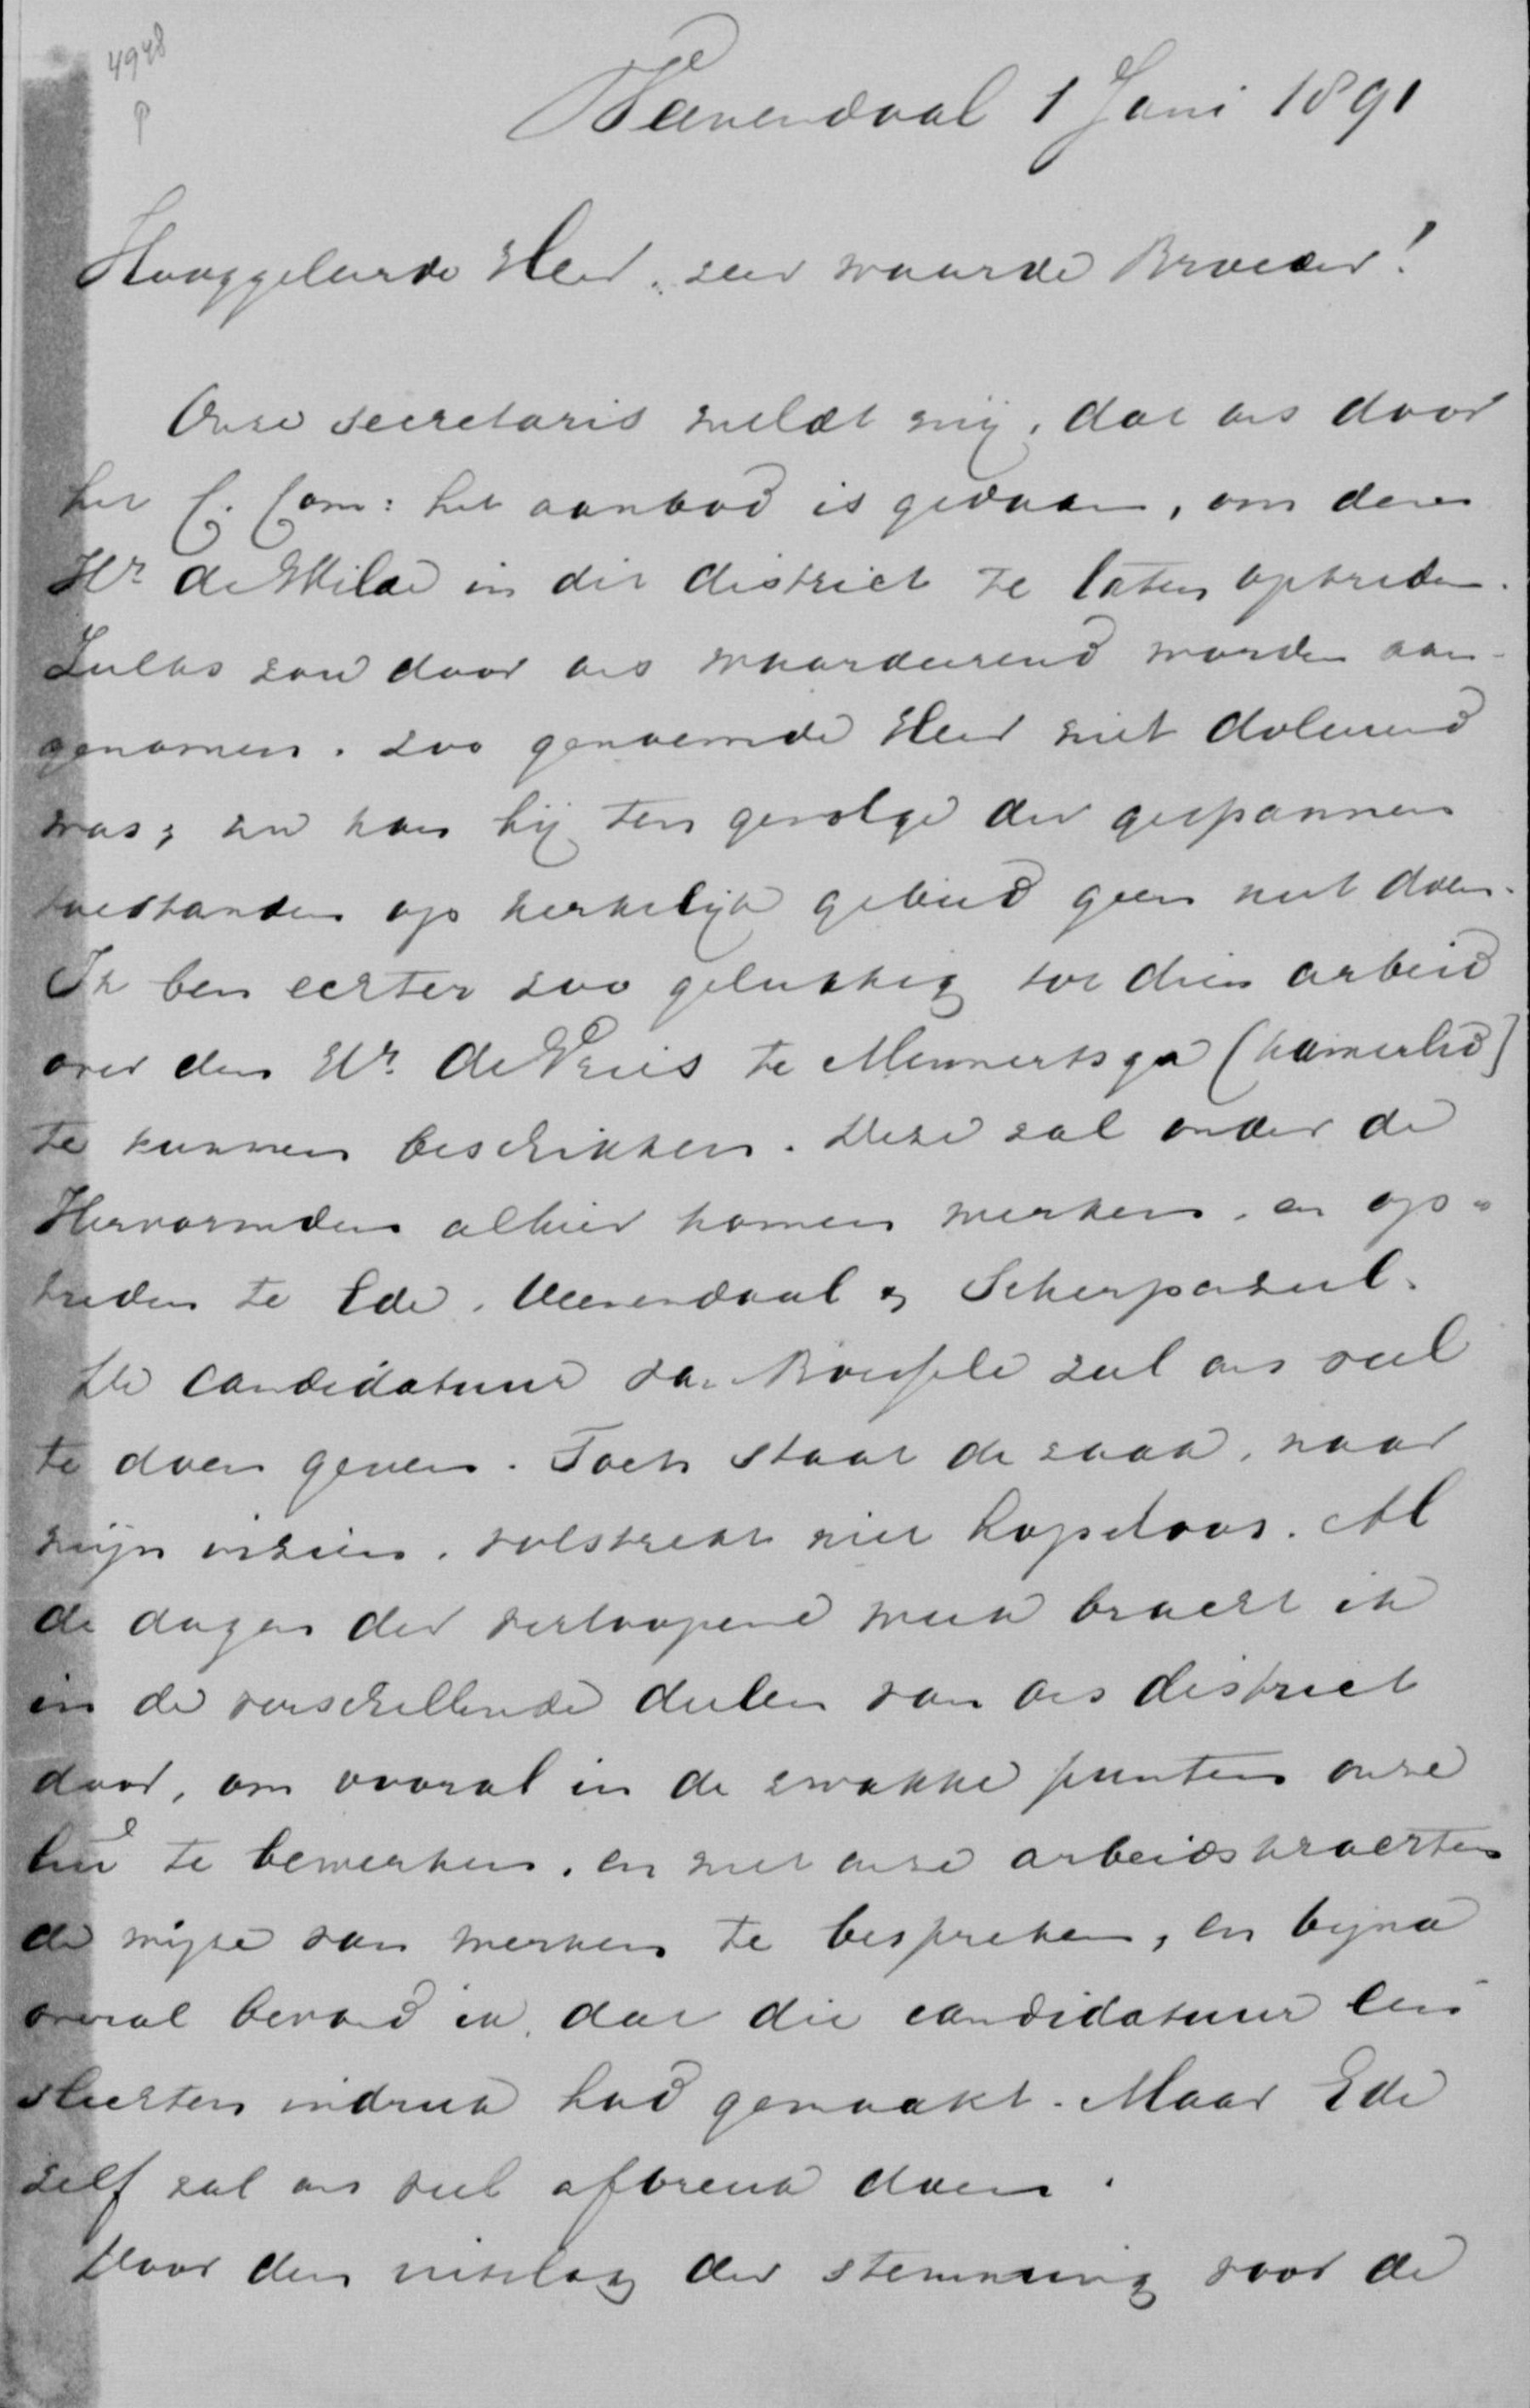 4948
P
Veenendaal 1 Juni 1891
Hooggeleerde Heer, zeer waarde Broeder!
Onze secretaris meldt mij, dat ons door
het C. Com: het aanbod is gedaan, om den
Hr de Wilde in dit district te laten optreden.
Zulks zou door ons waardeerend worden aan-
genomen, zoo genoemde Heer niet doleerend
was; nu kan hij ten gevolge der gespannen
toestanden op kerkelijk gebied geen nut doen.
Ik ben echter zoo gelukkig tot dien arbeid
over den Hr de Vries te Minnertsga (kamerlid)
te kunnen beschikken. Deze zal onder de
Hervormden alhier komen werken, en op-
treden te Ede, Veenendaal & Scherpenzeel.
De candidatuur van Borssele zal ons veel
te doen geven. Toch staat de zaak, naar
mijn inzien, volstrekt niet hopeloos. Al
de dagen der verloopene week bracht ik
in de verschillende deelen van ons district
door, om vooral in de zwakke punten onze
lui te bewerken, en met onze arbeidskrachten
de wijze van werken te bespreken, en bijna
overal bevond ik, dat die candidatuur een
slechten indruk had gemaakt. Maar Ede
zelf zal ons veel afbreuk doen.
Voor den uitslag der stemming voor de